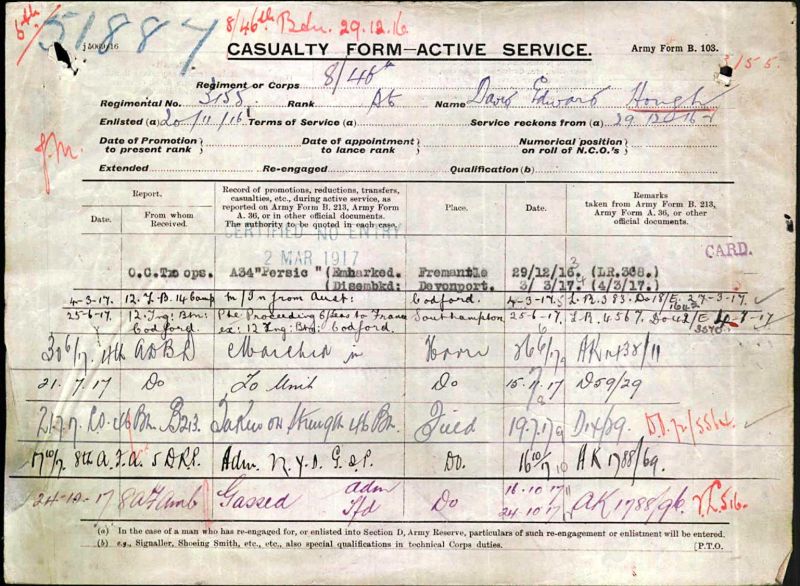 5th
51887
8/46th Bdn. 29.12.16
j 5069/16
CASUALTY FORM—ACTIVE SERVICE.
Army Form B. 103.
3155.
Regiment or Corps 8/46th
Regimental No. 3155. Rank Pte Name David Edward Hough
Enlisted (a) 20/11/16 Terms of Service (a) Service reckons from (a) 29
Date of Promotion to present rank} Date of appointment to lance rank} Numerical position on roll of N.C.O.'s}
Extended Re-engaged Qualification (b)
Report. Record of promotions, reductions, transfers, casualties, etc., during active service, as reported on Army Form B. 213, Army Form A. 36, or in other official documents. The authority to be quoted in each case. Place. Date. Remarks taken from Army Form B. 213, Army Form A. 36, or other official documents.
Date. From whom Received.
CERTIFIED NO ENTRY
2 MAR 1917
CARD.
O.C. Troops. A34 "Persic" (Embarked. Fremantle 29/12/16. (LR.368.)
(Disembkd: Devonport. 3/3/17. (4/3/17.)
4-3-17. 12. T.B. 14 Camp M/In from Aust: Codford. 4-3-17. L.R. 383. Do 18/E. 27-3-17.
1642
25-6-17. 12. Ing: Btn: Codford. Pte Proceeding O/Seas to France ex: 12 Ing: Btn: Codford. Southampton 25-6-17. L.R. 4567. Do 42/E 4-7-17
30 6/17 4th ADBD Marched in Havre 26 6/17 AK 1438/11
21.7.17 Do To Unit Do 15.7.17 D59/29
21.7.17. CO. 46 Bn. B213. Taken on Strength 46 Bn. Field 19.7.17
17 10/17. 8th A.F.A. 5 DRS. Adm. N.Y.D. G.S.P. Do. 16 10/17 AK 1788/69.
24-10-17 8 A F Amb Gassed adm Tfd Do 16.10.17 24.10.17 AK 1788/96.
(a) In the case of a man who has re-engaged for, or enlisted into Section D, Army Reserve, particulars of such re-engagement or enlistment will be entered.
(b) e.g., Signaller, Shoeing Smith, etc., etc., also special qualifications in technical Corps duties. [P.T.O.